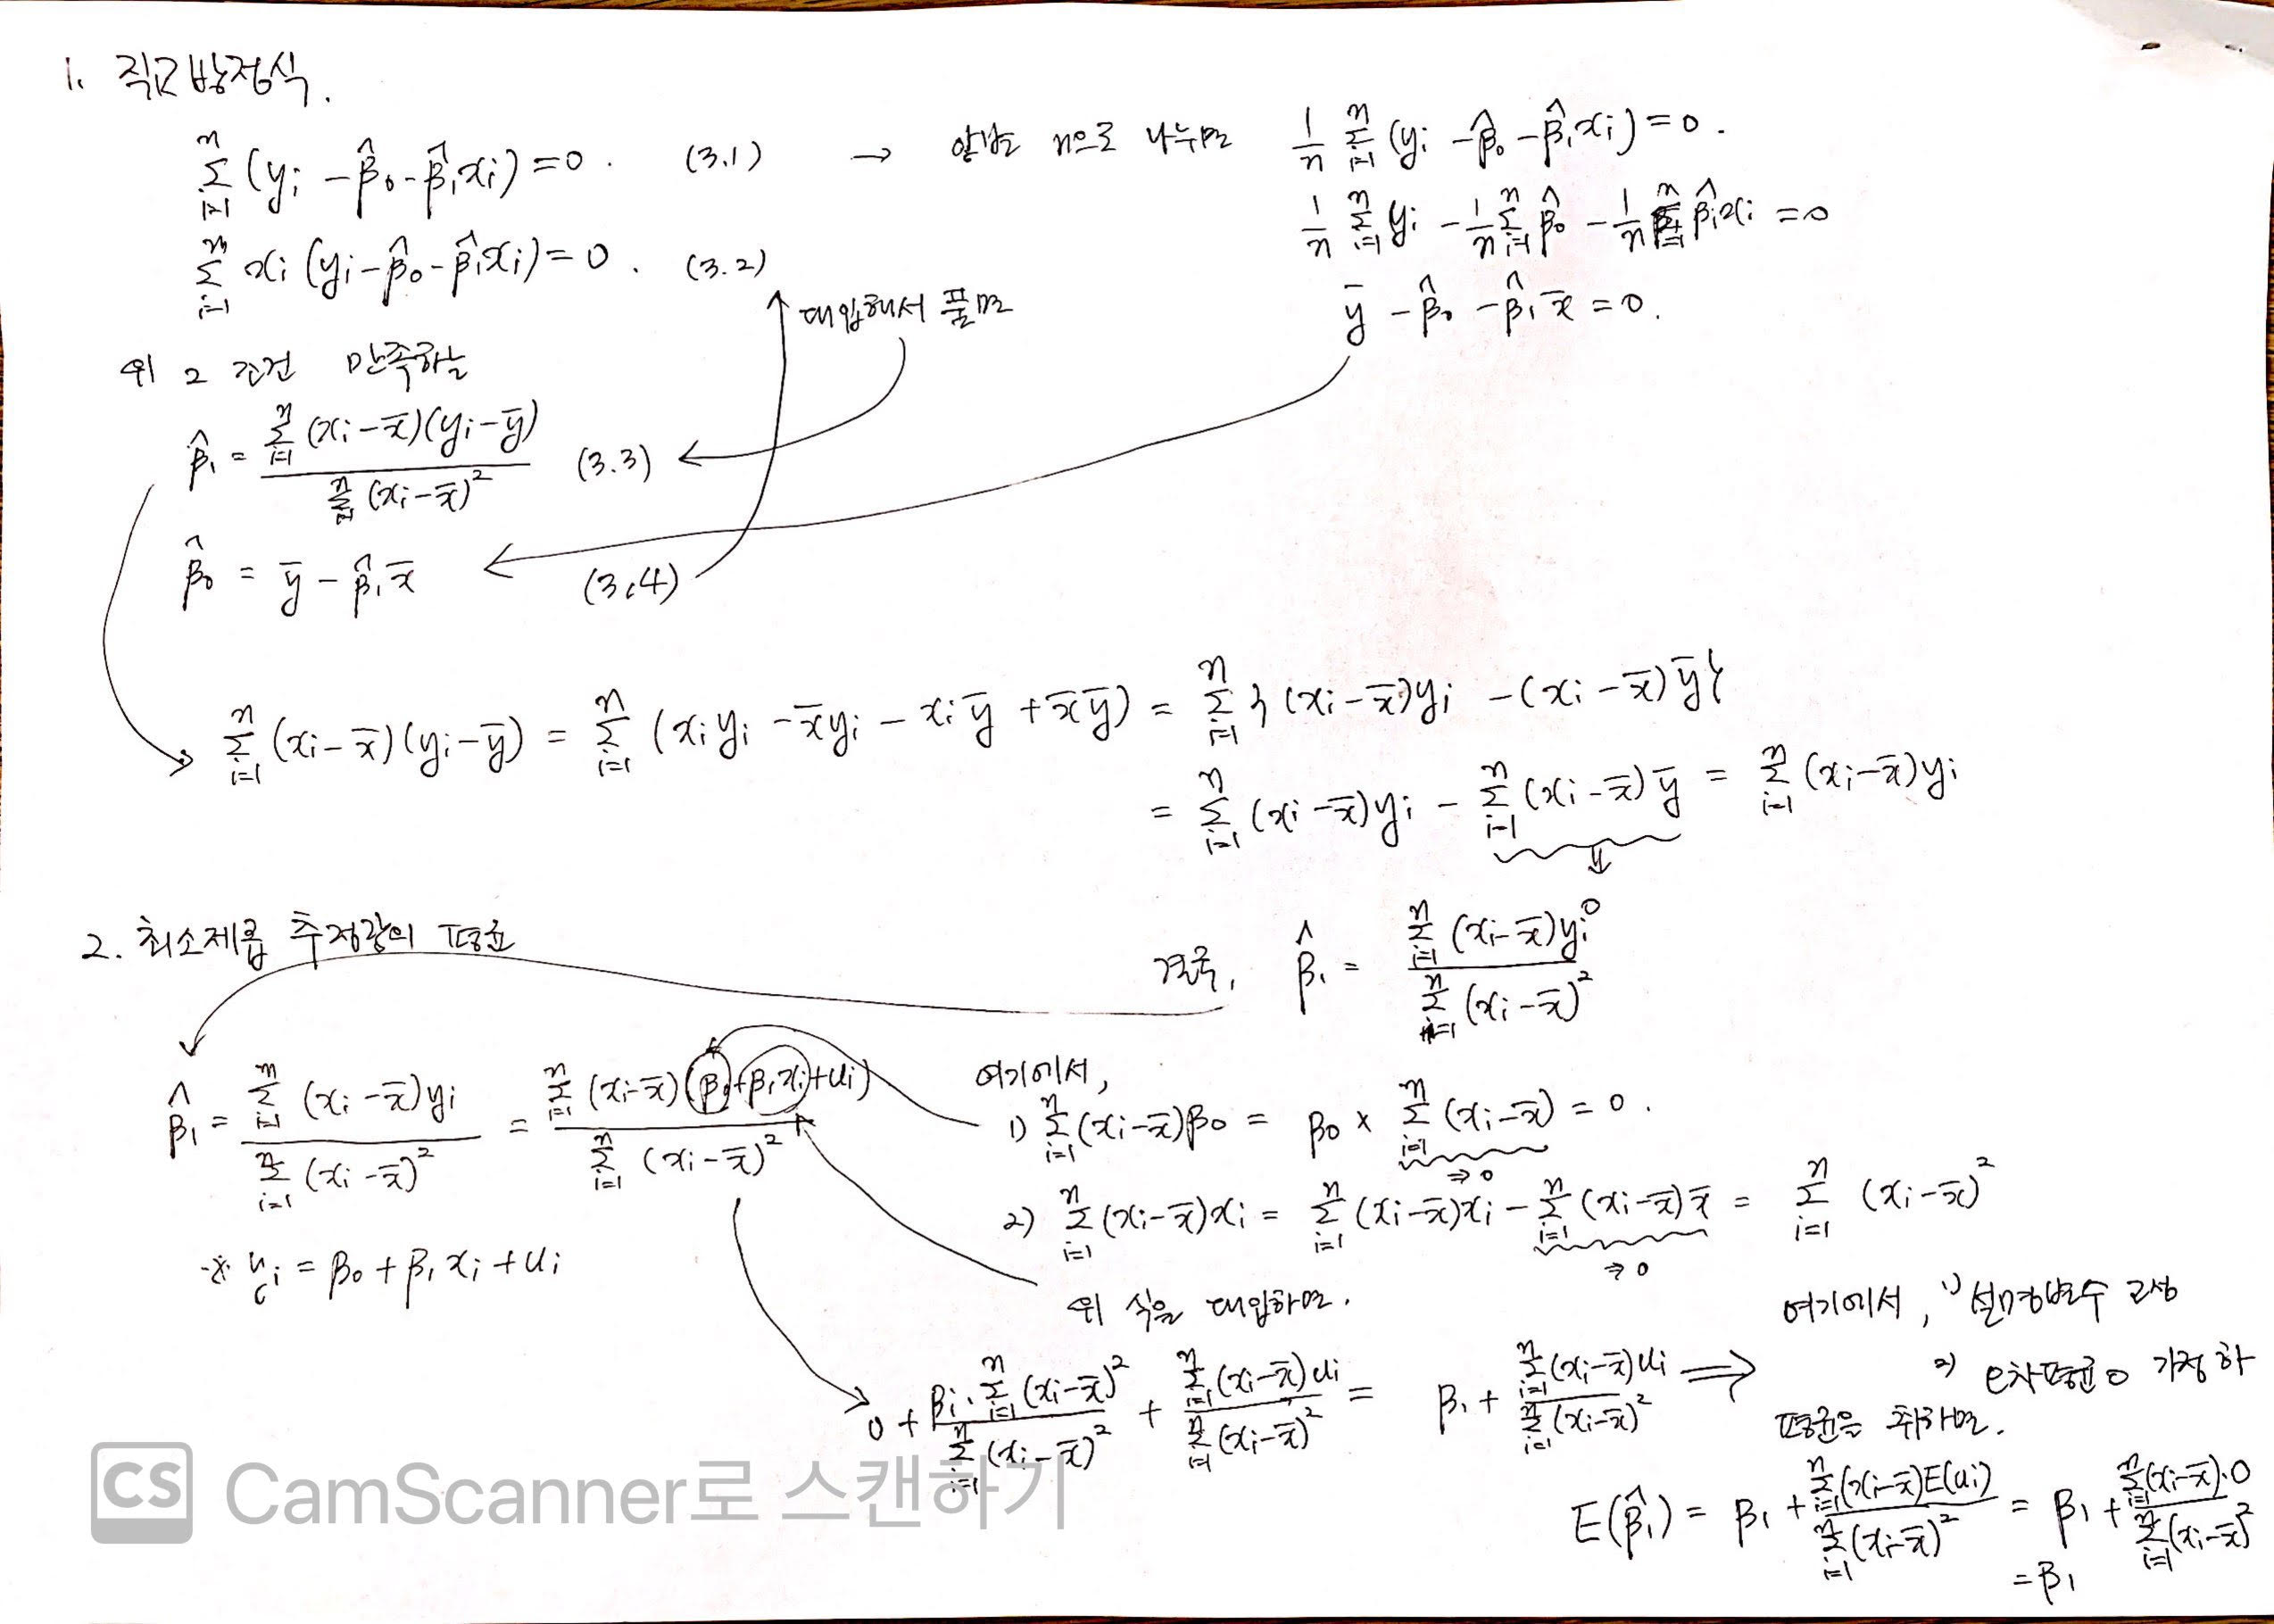 1. 직교방정식.
∑_{i=1}^{n} (y_i - β̂_0 - β̂_1 x_i) = 0. (3.1) → 양변 n으로 나누면 1/n ∑_{i=1}^{n} (y_i - β̂_0 - β̂_1 x_i) = 0.
1/n ∑_{i=1}^{n} y_i - 1/n ∑_{i=1}^{n} β̂_0 - 1/n ∑_{i=1}^{n} β̂_1 x_i = 0
∑_{i=1}^{n} x_i (y_i - β̂_0 - β̂_1 x_i) = 0. (3.2)
대입해서 풀면
ȳ - β̂_0 - β̂_1 x̄ = 0.
위 2 조건 만족하는
β̂_1 = ∑_{i=1}^{n} (x_i - x̄)(y_i - ȳ) / ∑_{i=1}^{n} (x_i - x̄)² (3.3)
β̂_0 = ȳ - β̂_1 x̄ (3.4)
∑_{i=1}^{n} (x_i - x̄)(y_i - ȳ) = ∑_{i=1}^{n} (x_i y_i - x̄ y_i - x_i ȳ + x̄ ȳ) = ∑_{i=1}^{n} {(x_i - x̄) y_i - (x_i - x̄) ȳ}
= ∑_{i=1}^{n} (x_i - x̄) y_i - ∑_{i=1}^{n} (x_i - x̄) ȳ = ∑_{i=1}^{n} (x_i - x̄) y_i
⇓
0
결국, β̂_1 = ∑_{i=1}^{n} (x_i - x̄) y_i / ∑_{i=1}^{n} (x_i - x̄)²
2. 최소제곱 추정량의 평균
β̂_1 = ∑_{i=1}^{n} (x_i - x̄) y_i / ∑_{i=1}^{n} (x_i - x̄)² = ∑_{i=1}^{n} (x_i - x̄)(β_0 + β_1 x_i + u_i) / ∑_{i=1}^{n} (x_i - x̄)²
※ y_i = β_0 + β_1 x_i + u_i
여기에서,
1) ∑_{i=1}^{n} (x_i - x̄) β_0 = β_0 × ∑_{i=1}^{n} (x_i - x̄) = 0.
⇒ 0
2) ∑_{i=1}^{n} (x_i - x̄) x_i = ∑_{i=1}^{n} (x_i - x̄) x_i - ∑_{i=1}^{n} (x_i - x̄) x̄ = ∑_{i=1}^{n} (x_i - x̄)²
⇒ 0
위 식을 대입하면.
0 + β_1 · ∑_{i=1}^{n} (x_i - x̄)² / ∑_{i=1}^{n} (x_i - x̄)² + ∑_{i=1}^{n} (x_i - x̄) u_i / ∑_{i=1}^{n} (x_i - x̄)² = β_1 + ∑_{i=1}^{n} (x_i - x̄) u_i / ∑_{i=1}^{n} (x_i - x̄)² ⇒
여기에서, 1) 설명변수 고정
2) 오차평균 0 가정 하
평균을 취하면.
E(β̂_1) = β_1 + ∑_{i=1}^{n} (x_i - x̄) E(u_i) / ∑_{i=1}^{n} (x_i - x̄)² = β_1 + ∑_{i=1}^{n} (x_i - x̄) · 0 / ∑_{i=1}^{n} (x_i - x̄)²
= β_1
CS CamScanner로 스캔하기